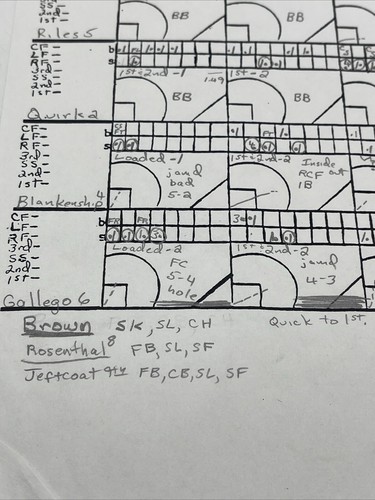 SS-
2nd-
1st-
BB
BB
Riles 5
CF-
LF-
RF-
3rd-
SS-
2nd-
1st-
b
s
1st-2nd-1
1-49
1st-2
BB
BB
Quirk 2
CF-
LF-
RF-
3rd-
SS-
2nd-
1st-
b
s
Loaded-1
1st-2nd-2
jamd
bad
5-2
Inside
RCF out
1B
Blankenship 4
CF-
LF-
RF-
3rd-
SS-
2nd-
1st-
b
s
Loaded-2
1st-2nd-2
FC
5-4
hole
jamd
4-3
Gallego 6
Brown SK, SL, CH
Quick to 1st.
Rosenthal 8 FB, SL, SF
Jeffcoat 9th FB, CB, SL, SF